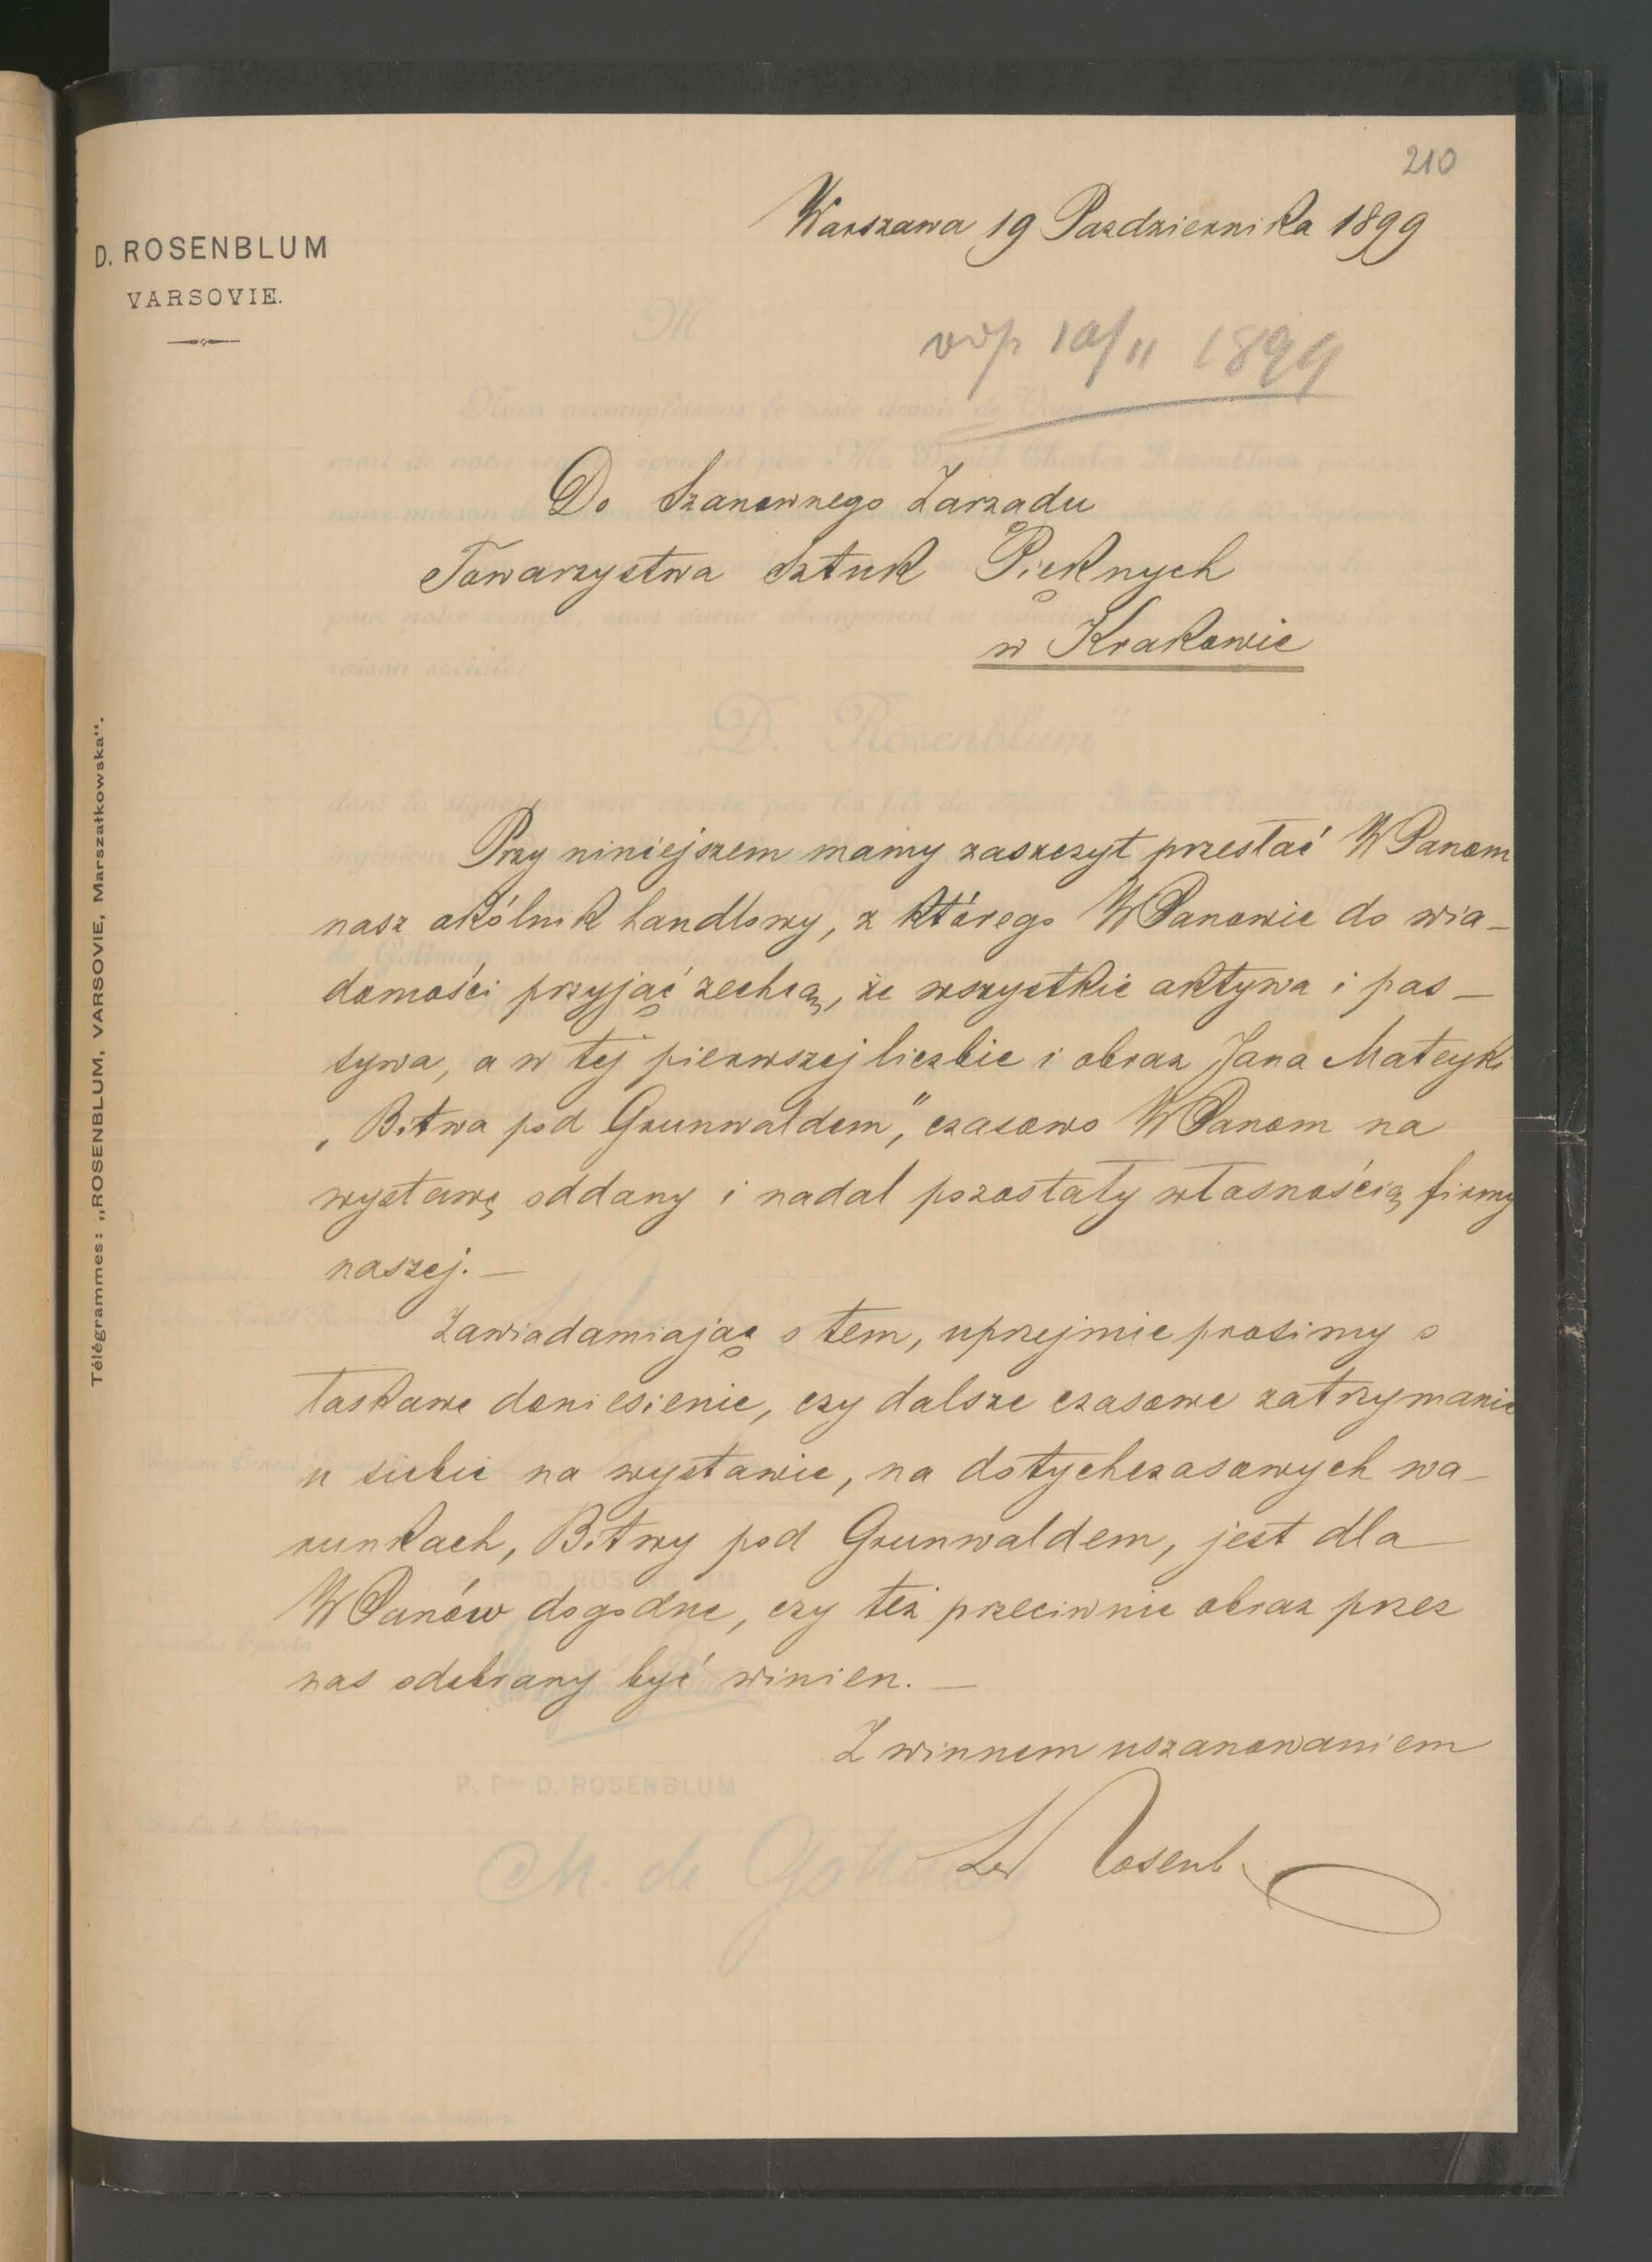 210
Warszawa 19 Pazdziernika 1899
D. ROSENBLUM
VARSOVIE.
odp 10/11 1899
Do Szanownego Zarządu
Towarzystwa Sztuk Pięknych
w Krakowie
„D. Rosenblum"
Télégrammes: „ROSENBLUM, VARSOVIE, Marszałkowska".
Przy niniejszem mamy zaszczyt przesłać WPanom
nasz okólnik handlowy, z którego WPanowie do wia-
domości przyjąć zechcą, że wszystkie aktywa i pas-
tywa, a w tej pierwszej liczbie i obraz Jana Matejki
„Bitwa pod Grunwaldem", czasowo WPanom na
wystawę oddany i nadal pozostały własnością firmy
naszej. —
Zawiadamiając o tem, uprzejmie prosimy o
łaskawe doniesienie, czy dalsze czasowe zatrzymanie
u siebie na wystawie, na dotychczasowych wa-
runkach, Bitwy pod Grunwaldem, jest dla
WPanów dogodne, czy też przeciwnie obraz przez
nas odebrany być winien. —
Z winnem uszanowaniem
P. Pon D. ROSENBLUM